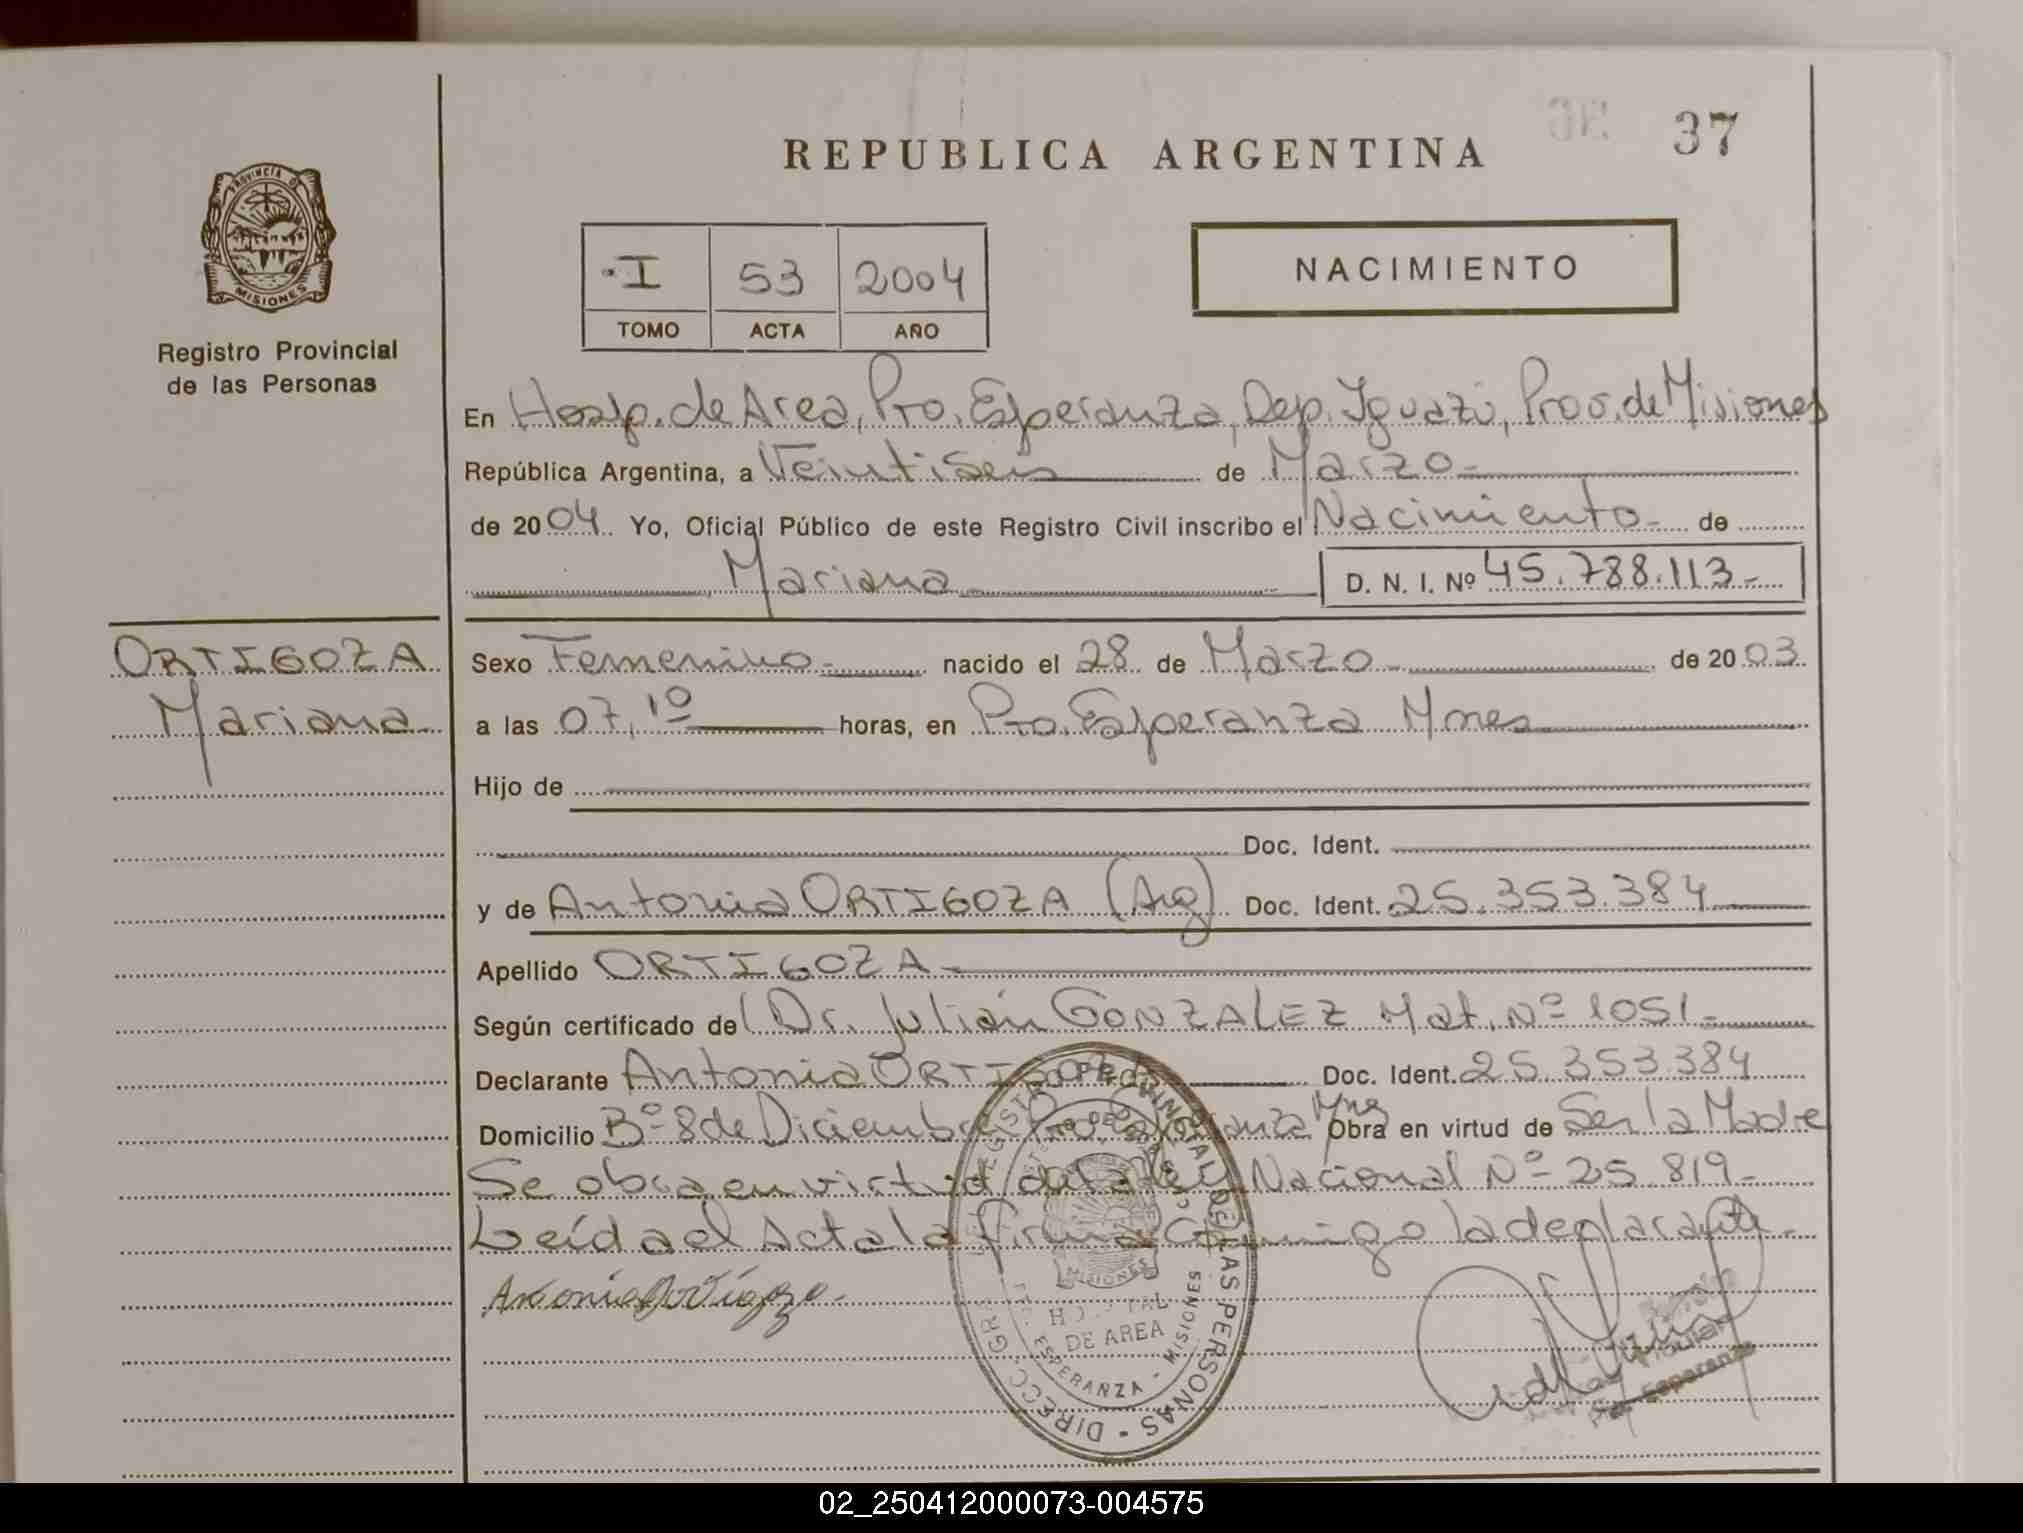 37
REPUBLICA ARGENTINA
PROVINCIA DE
MISIONES
Registro Provincial
de las Personas
I 53 2004
TOMO ACTA AÑO
NACIMIENTO
En Hosp. de Area, Pto. Esperanza, Dep. Iguazú, Prov. de Misiones
República Argentina, a Veintiseis de Marzo
de 2004 Yo, Oficial Público de este Registro Civil inscribo el Nacimiento de
Mariana D. N. I. Nº 45.788.113.-
ORTIGOZA
Mariana
Sexo Femenino nacido el 28 de Marzo de 2003.
a las 07,10 horas, en Pto. Esperanza Mnes
Hijo de
Doc. Ident.
y de Antonia ORTIGOZA (Arg) Doc. Ident. 25.353.384
Apellido ORTIGOZA
Según certificado del Dr. Julián GONZALEZ Mat. Nº 1051
Declarante Antonia ORTIGOZA Doc. Ident. 25.353.384
Domicilio Bº 8 de Diciembre Pto. Esperanza Mnes Obra en virtud de Ser la Madre
Se obra en virtud de la ley Nacional Nº 25.819.-
Leída el Acta la firma conmigo la declarante.-
Antonia Ortigoza.
REGISTRO PROVINCIAL DE LAS PERSONAS - DIRECC. GRAL.
MISIONES
HOSPITAL
DE AREA
ESPERANZA - MISIONES
Titular
Pto. Esperanza
02_250412000073-004575